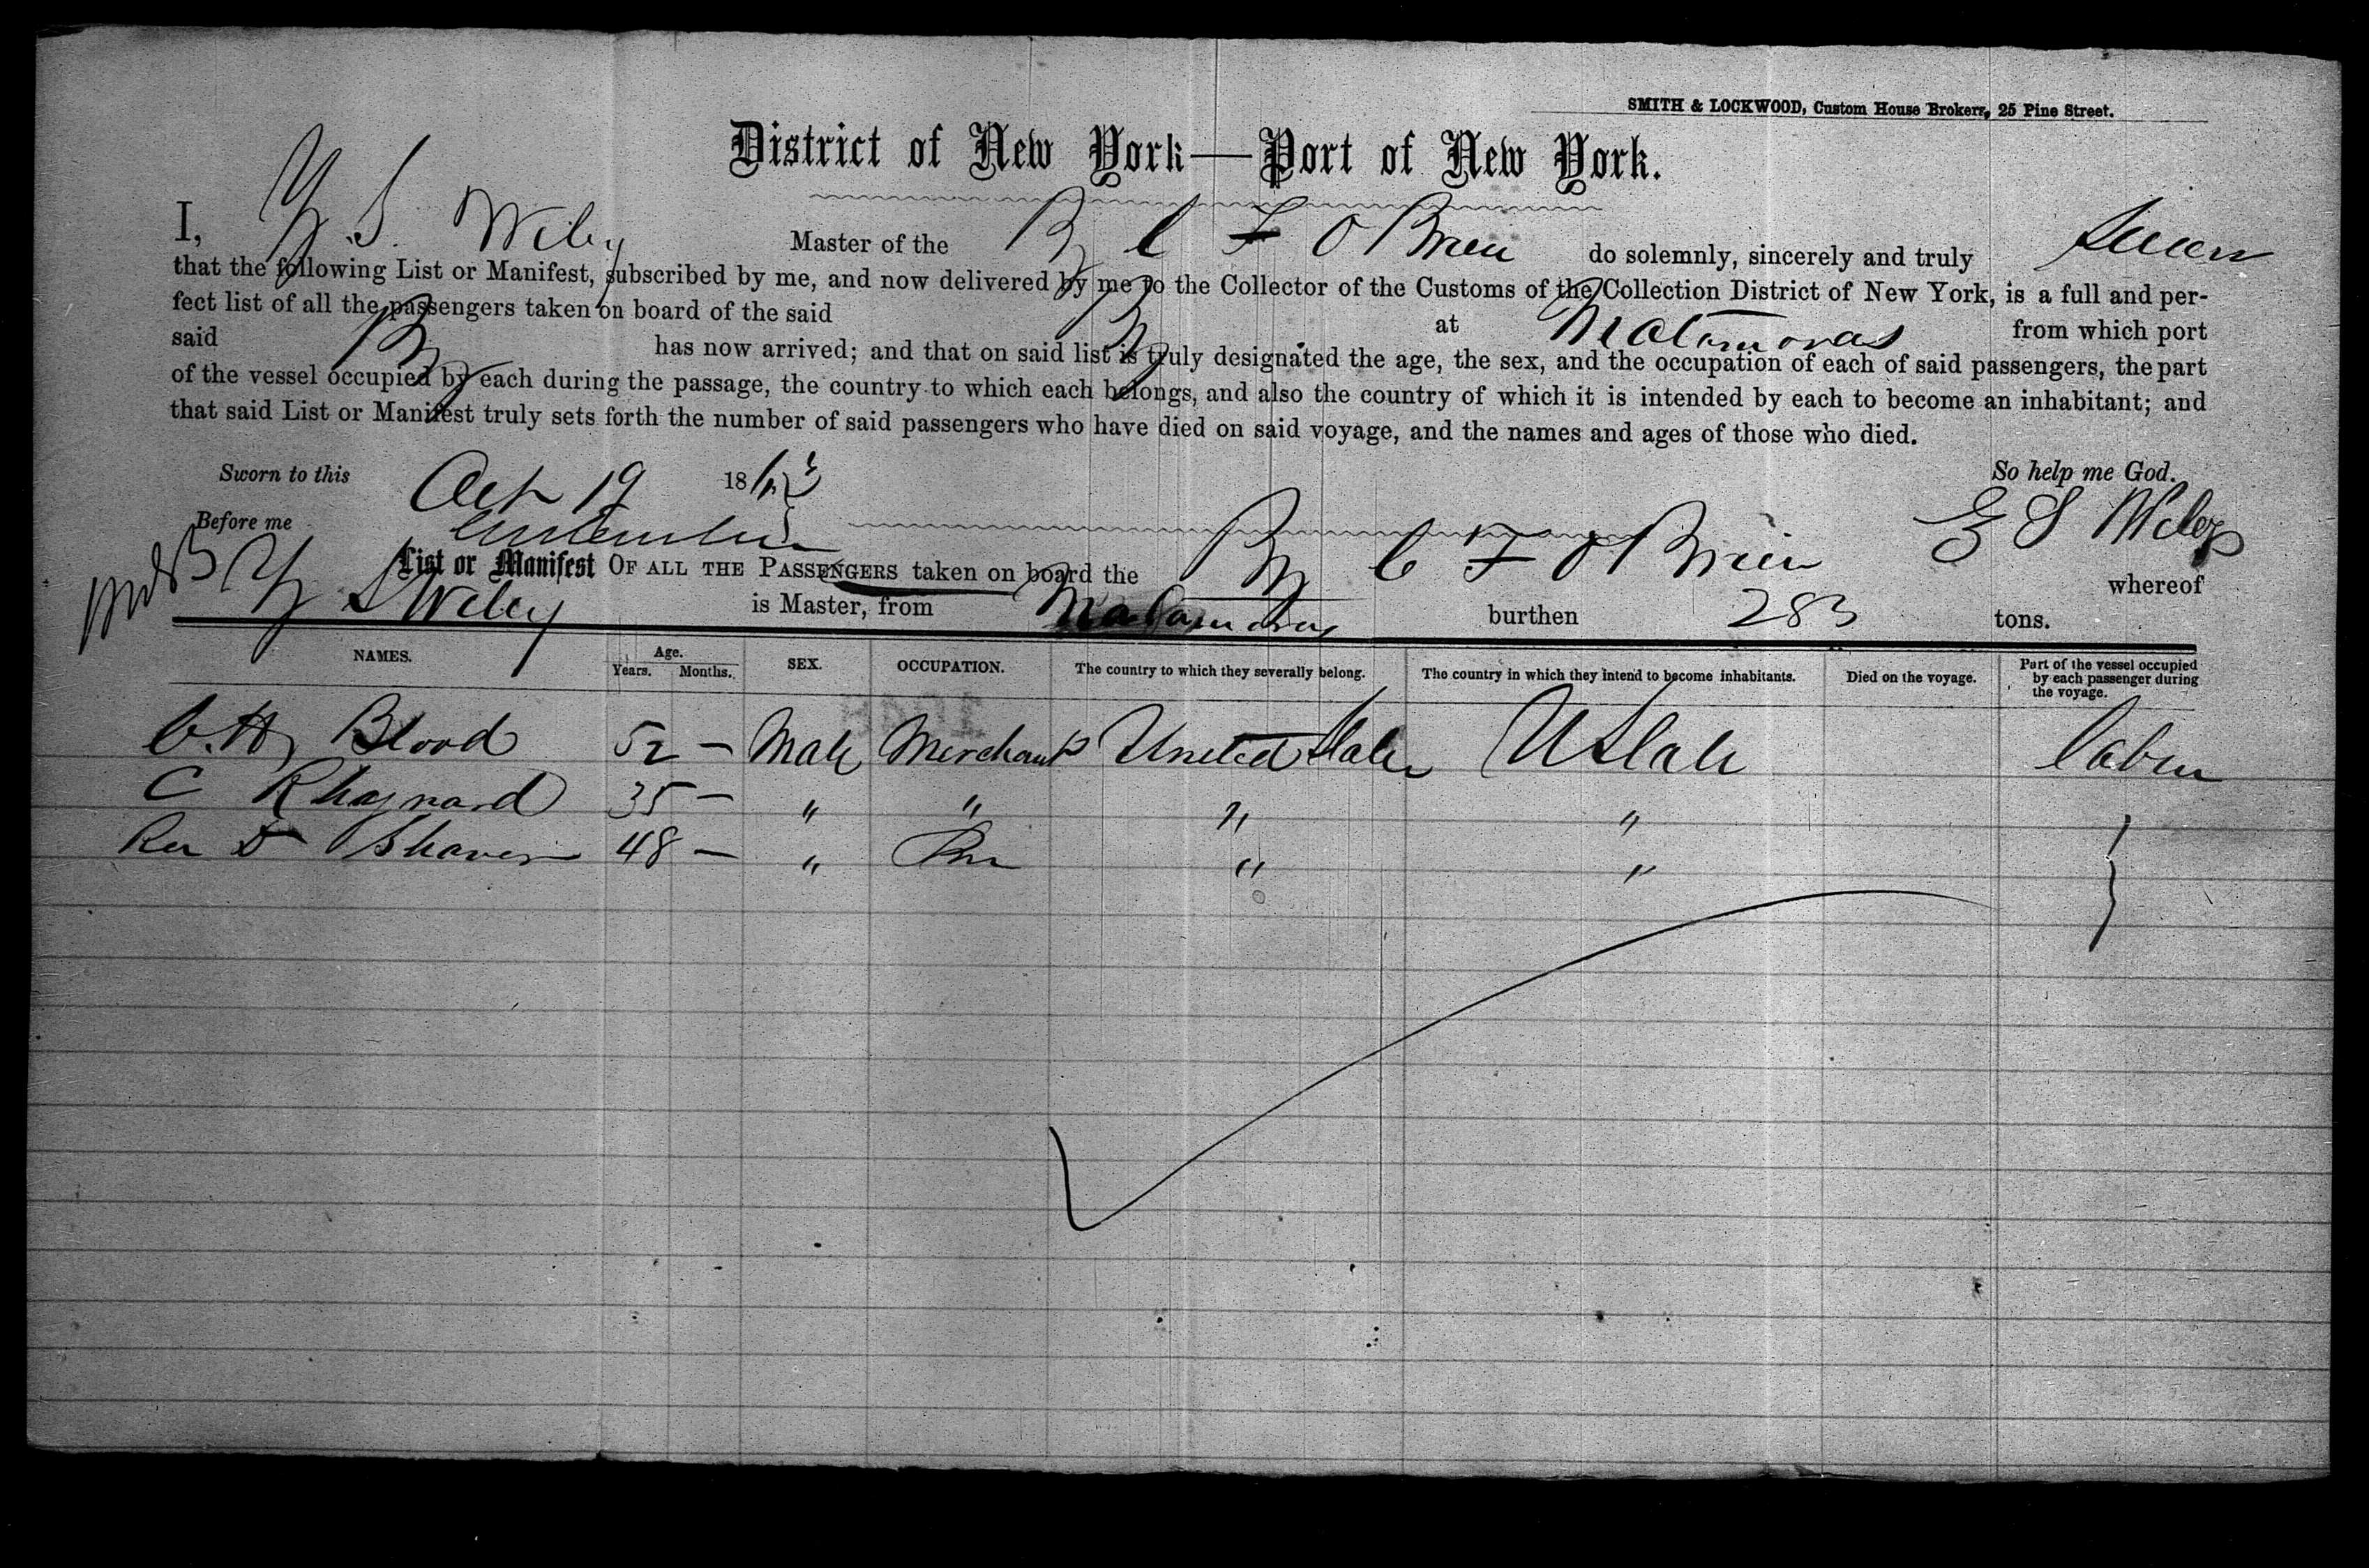 SMITH & LOCKWOOD, Custom House Brokers, 25 Pine Street.
District of New York—Port of New York.
I, S. Wiley Master of the Bg C F O Brien do solemnly, sincerely and truly swear
that the following List or Manifest, subscribed by me, and now delivered by me to the Collector of the Customs of the Collection District of New York, is a full and per-
fect list of all the passengers taken on board of the said Bg at Matamoras from which port
said Bg has now arrived; and that on said list is truly designated the age, the sex, and the occupation of each of said passengers, the part
of the vessel occupied by each during the passage, the country to which each belongs, and also the country of which it is intended by each to become an inhabitant; and
that said List or Manifest truly sets forth the number of said passengers who have died on said voyage, and the names and ages of those who died.
Sworn to this Oct 19 1863 So help me God.
Before me E S Wiley
List or Manifest OF ALL THE PASSENGERS taken on board the Bg C F O Brien whereof
S Wiley is Master, from Matamoras burthen 283 tons.
NAMES. Age. Years. Months. SEX. OCCUPATION. The country to which they severally belong. The country in which they intend to become inhabitants. Died on the voyage. Part of the vessel occupied by each passenger during the voyage.
Blood 52 — Male Merchant United States U State Cabin
C Rhaynard 35 — " " " "
D Shaver 48 — " " "